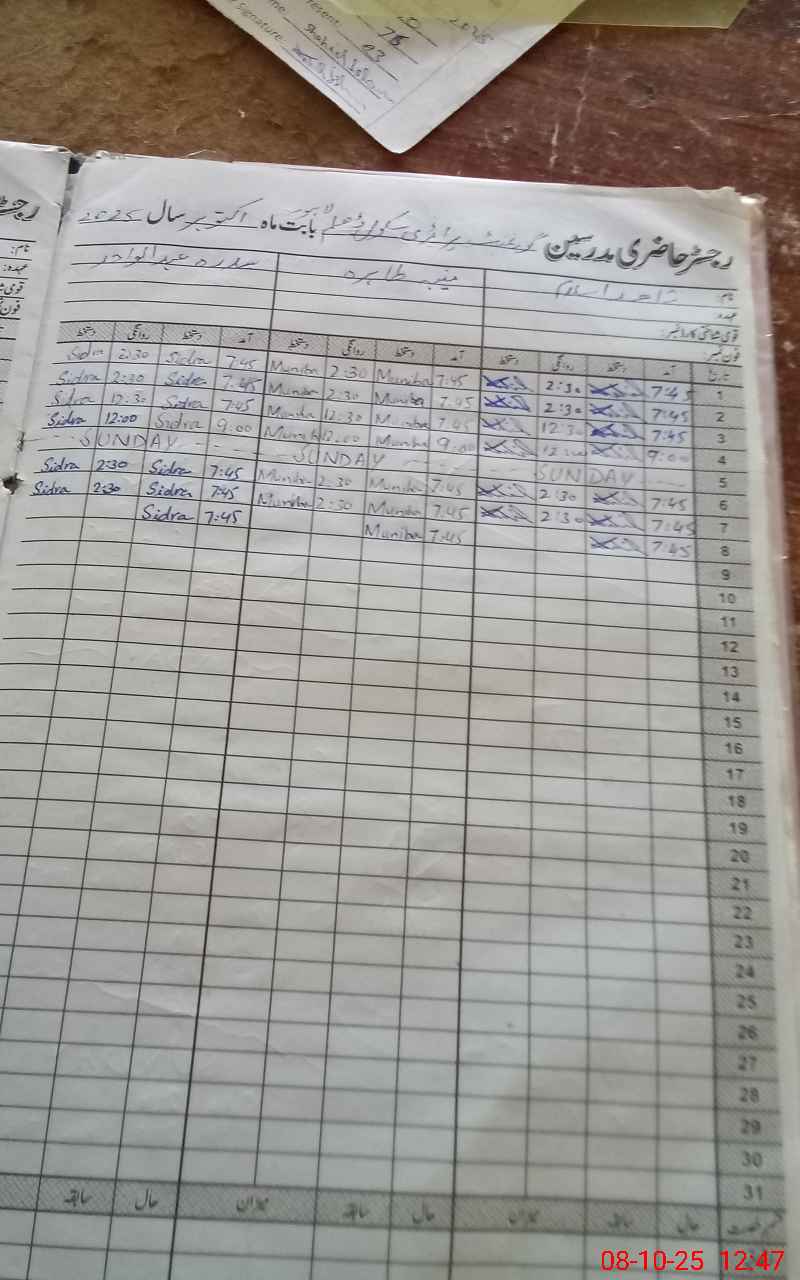 2025
75
03
Signature
رجسٹر حاضری مدرسین گورنمنٹ پرائمری سکول لاہور بابت ماہ اکتوبر سال 2025
نام: شاہد اسلام منیبہ طاہرہ سدرہ عبدالواحد
عہدہ:
قومی شناختی کارڈ نمبر:
فون نمبر:
تاریخ آمد دستخط روانگی دستخط آمد دستخط روانگی دستخط آمد دستخط روانگی دستخط
1 7:45 2:30 7:45 Muniba 2:30 Muniba 7:45 Sidra 2:30 Sidra
2 7:45 2:30 7:45 Muniba 2:30 Muniba 7:45 Sidra 2:30 Sidra
3 7:45 12:30 7:45 Muniba 12:30 Muniba 7:45 Sidra 12:30 Sidra
4 9:00 12:00 9:00 Muniba 12:00 Muniba 9:00 Sidra 12:00 Sidra
5 SUNDAY SUNDAY SUNDAY
6 7:45 2:30 7:45 Muniba 2:30 Muniba 7:45 Sidra 2:30 Sidra
7 7:45 2:30 7:45 Muniba 2:30 Muniba 7:45 Sidra 2:30 Sidra
8 7:45 7:45 Muniba 7:45 Sidra
9
10
11
12
13
14
15
16
17
18
19
20
21
22
23
24
25
26
27
28
29
30
31
حال سابقہ میزان حال سابقہ میزان حال سابقہ
08-10-25 12:47